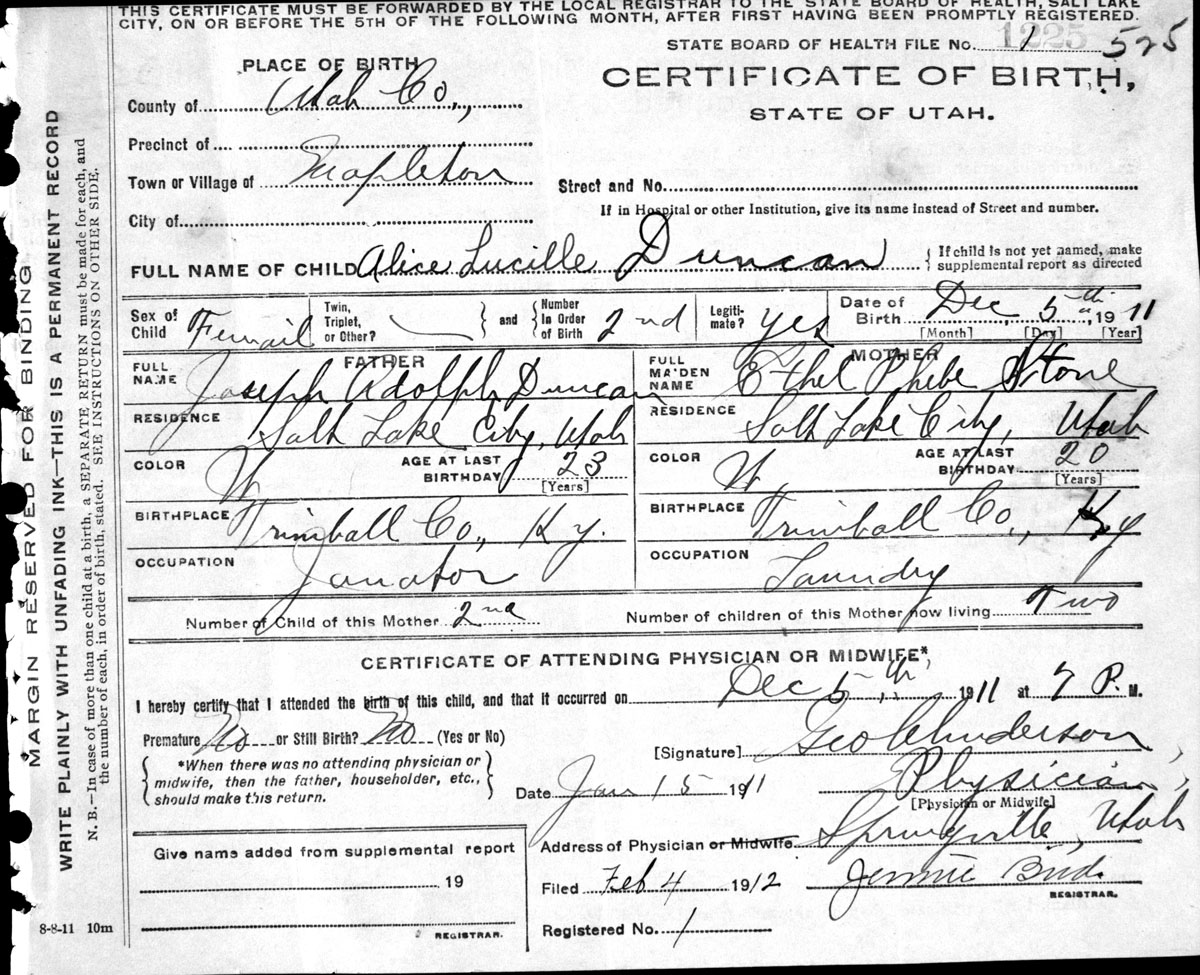 THIS CERTIFICATE MUST BE FORWARDED BY THE LOCAL REGISTRAR TO THE STATE BOARD OF HEALTH, SALT LAKE
CITY, ON OR BEFORE THE 5TH OF THE FOLLOWING MONTH, AFTER FIRST HAVING BEEN PROMPTLY REGISTERED.
STATE BOARD OF HEALTH FILE No. 1225 525
PLACE OF BIRTH
CERTIFICATE OF BIRTH,
STATE OF UTAH.
County of Utah Co.,
Precinct of
Town or Village of Mapleton
Street and No.
City of
If in Hospital or other Institution, give its name instead of Street and number.
FULL NAME OF CHILD Alice Lucille Duncan { If child is not yet named, make
supplemental report as directed
Sex of Child Femail Twin, Triplet, or Other? } and { Number In Order of Birth 2nd Legiti-mate? yes Date of Birth Dec 5th, 1911
[Month] [Day] [Year]
FATHER
MOTHER
FULL NAME Joseph Adolph Duncan
FULL MAIDEN NAME Ethel Phebe Stone
RESIDENCE Salt Lake City, Utah
RESIDENCE Salt Lake City, Utah
COLOR W. AGE AT LAST BIRTHDAY 23 [Years]
COLOR W. AGE AT LAST BIRTHDAY 20 [Years]
BIRTHPLACE Trimball Co., Ky.
BIRTHPLACE Trimball Co., Ky
OCCUPATION Janator
OCCUPATION Laundry
Number of Child of this Mother 2nd
Number of children of this Mother now living Two
CERTIFICATE OF ATTENDING PHYSICIAN OR MIDWIFE*,
I hereby certify that I attended the birth of this child, and that it occurred on Dec 5th, 1911 at 7 P. M.
Premature No or Still Birth? No (Yes or No)
[Signature] Geo Anderson,
{ *When there was no attending physician or
midwife, then the father, householder, etc.,
should make this return. }
Date Jan 15 1911
Physician,
[Physician or Midwife]
Address of Physician or Midwife Springville, Utah
Give name added from supplemental report
19
REGISTRAR.
Filed Feb 4 1912
Jennie Bird
REGISTRAR.
Registered No. 1
8-8-11 10m
MARGIN RESERVED FOR BINDING
WRITE PLAINLY WITH UNFADING INK—THIS IS A PERMANENT RECORD
N. B.—In case of more than one child at a birth, a SEPARATE RETURN must be made for each, and
the number of each, in order of birth, stated. SEE INSTRUCTIONS ON OTHER SIDE.